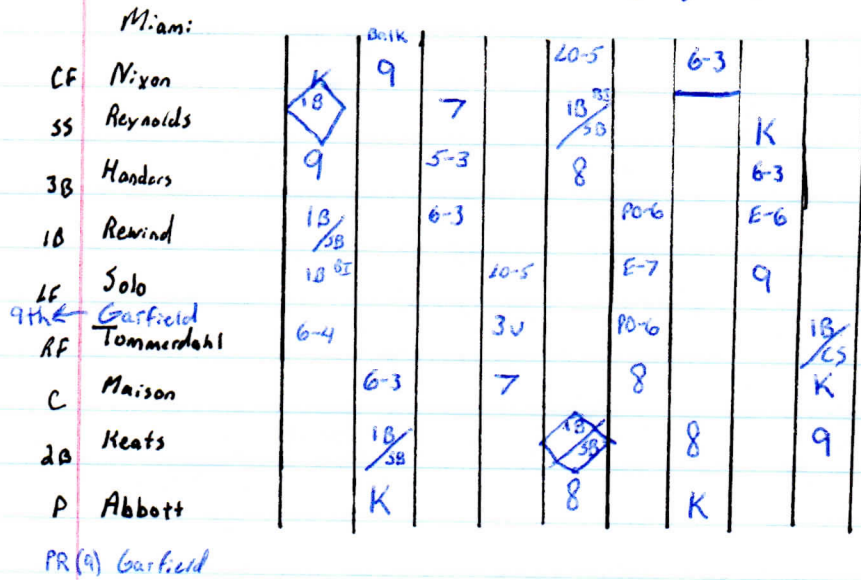 Miami
Balk
CF Nixon K 9 LO-5 6-3
SS Reynolds 1B 7 1B BI / SB K
3B Handors 9 5-3 8 6-3
1B Rewind 1B / SB 6-3 PO-6 E-6
LF Solo 1B BI LO-5 E-7 9
9th ← Garfield
RF Tommerdahl 6-4 3U PO-6 1B / CS
C Maison 6-3 7 8 K
2B Keats 1B / SB 1B / SB 8 9
P Abbott K 8 K
PR (9) Garfield